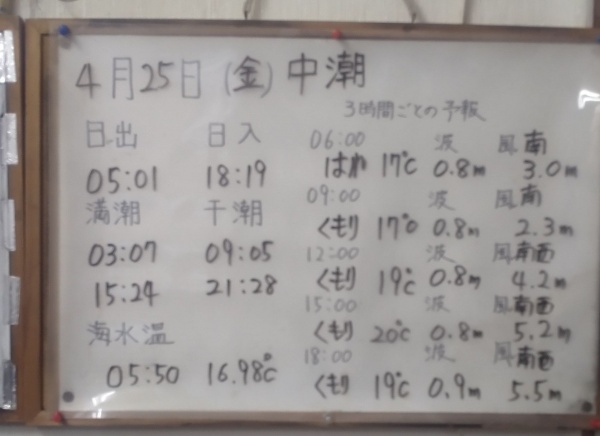 4月25日(金)中潮
3時間ごとの予報
日出 日入
05:01 18:19
満潮 干潮
03:07 09:05
15:24 21:28
海水温
05:50 16.98℃
06:00 波 風 南
はれ 17℃ 0.8m 3.0m
09:00 波 風 南
くもり 17℃ 0.8m 2.3m
12:00 波 風 南西
くもり 19℃ 0.8m 4.2m
15:00 波 風 南西
くもり 20℃ 0.8m 5.2m
18:00 波 風 南西
くもり 19℃ 0.9m 5.5m